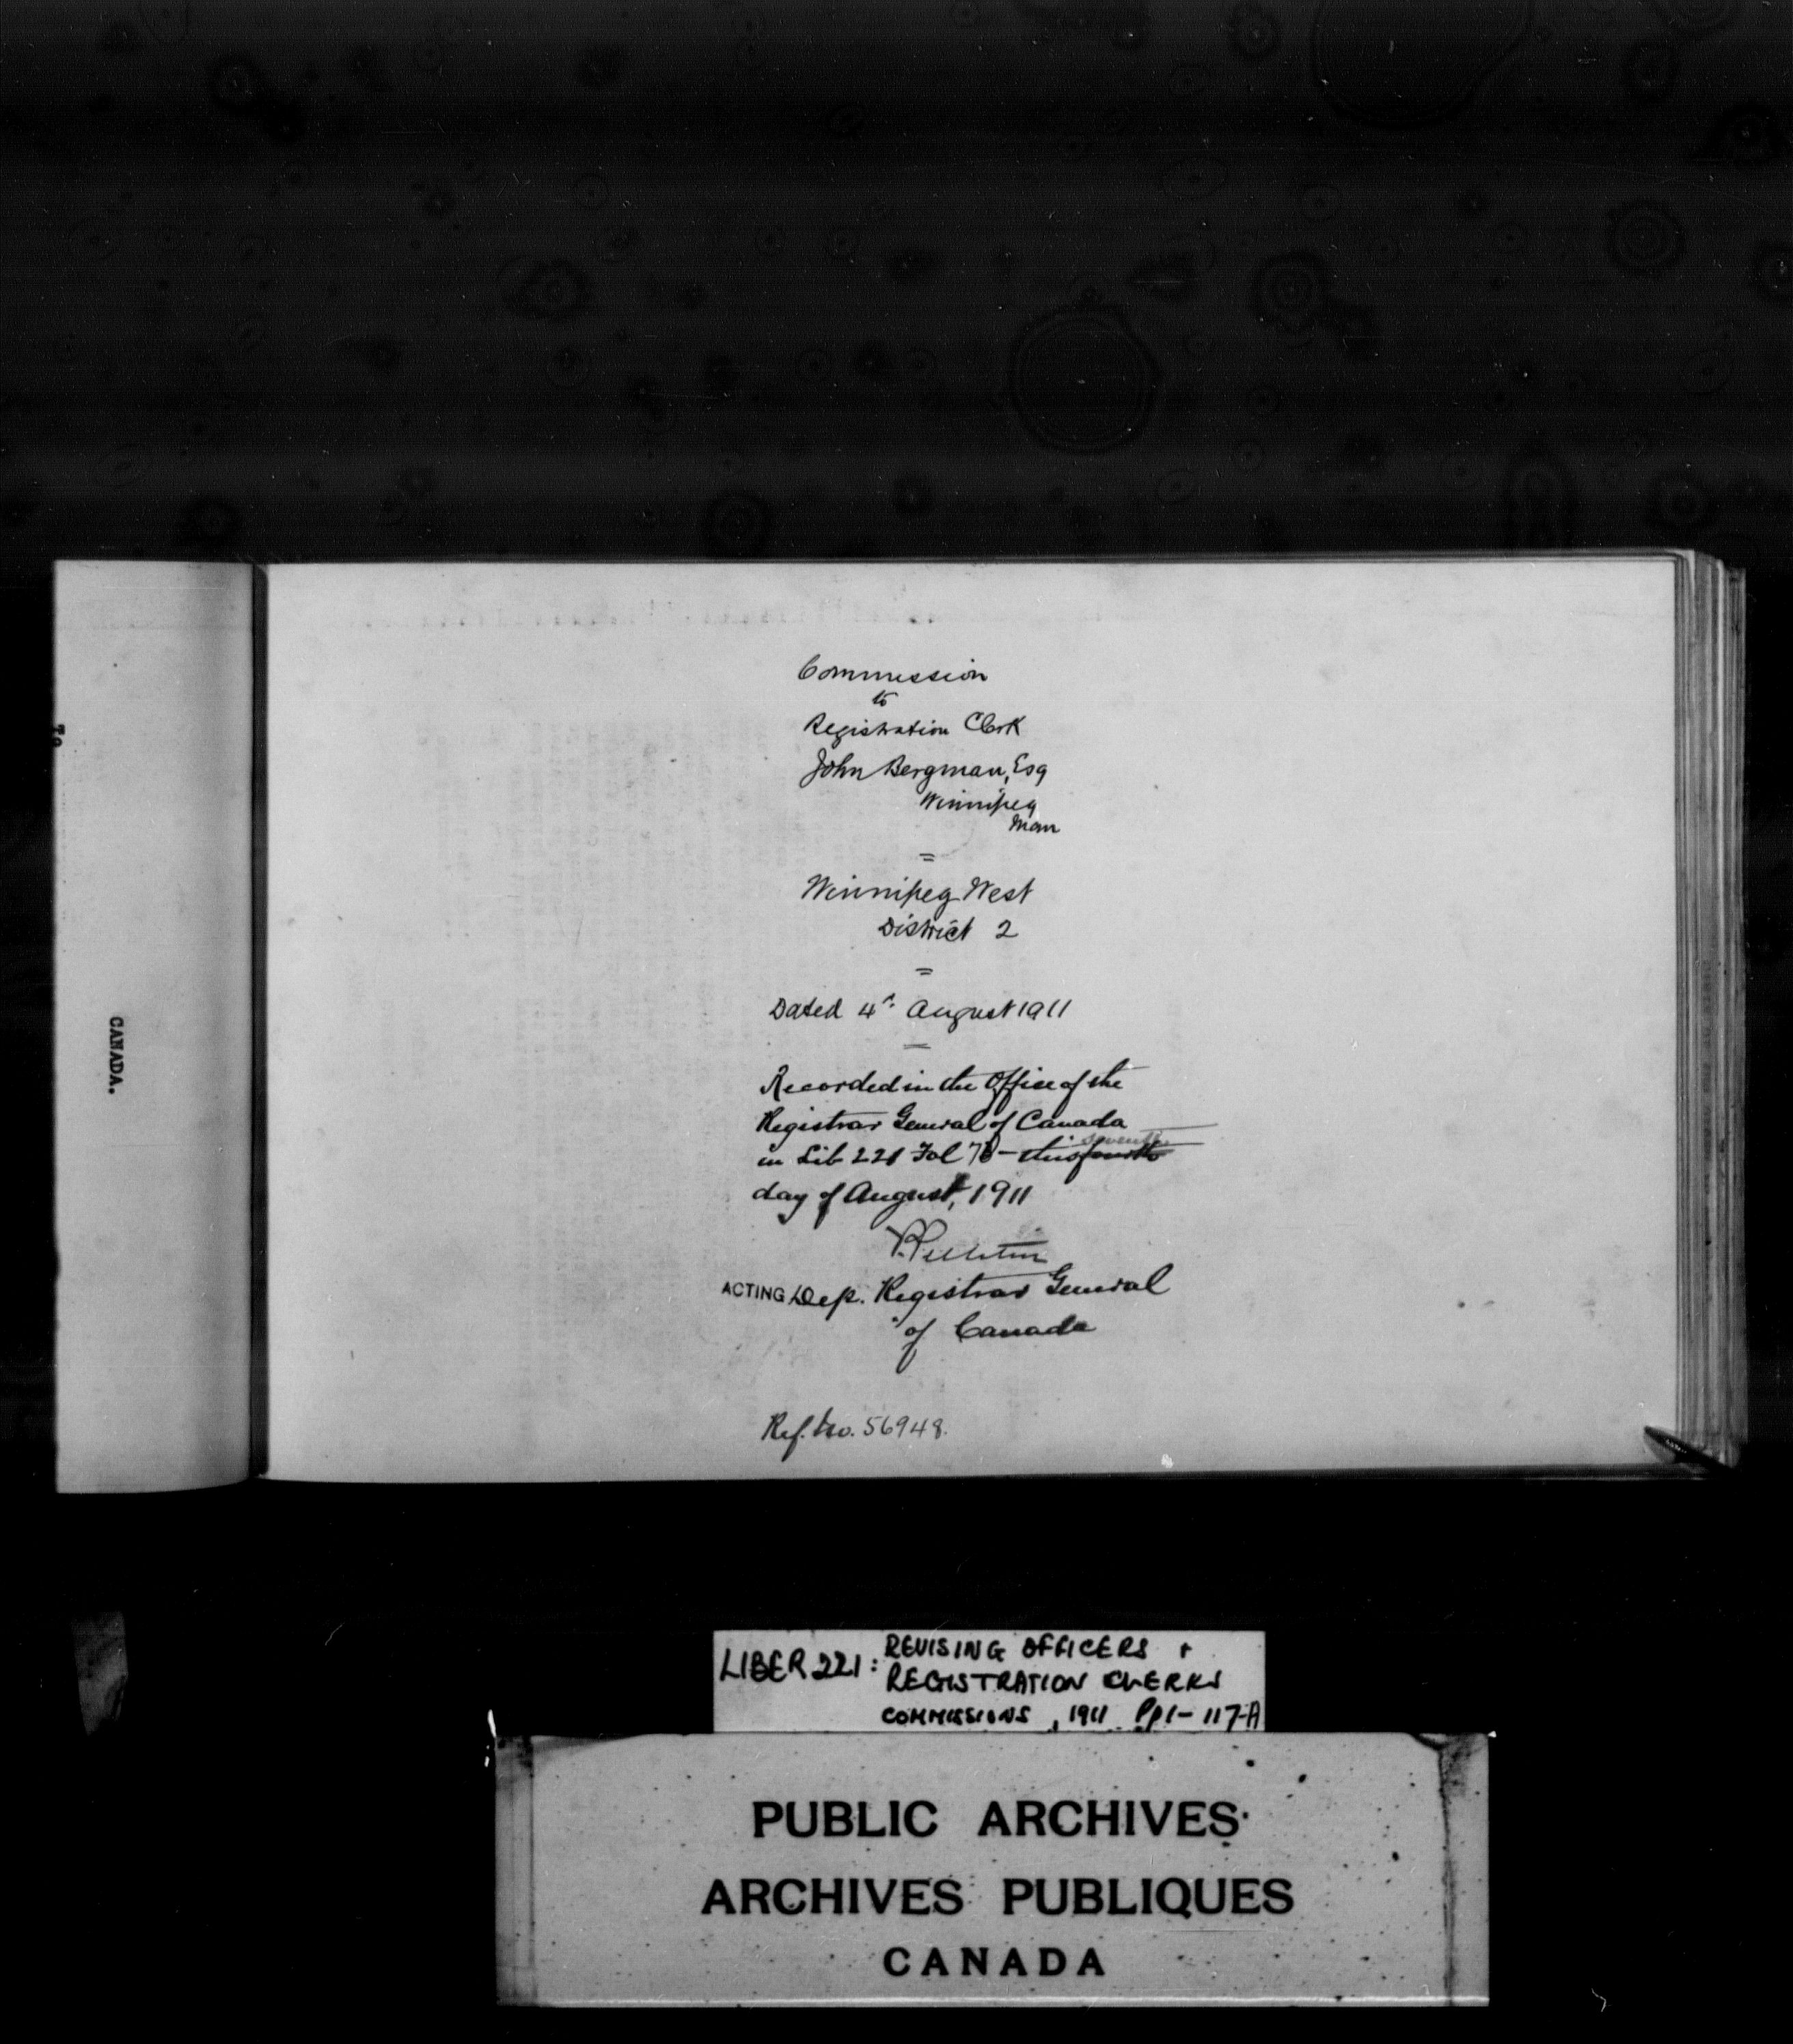 Commission
to
Registration Clerk
John Bergman, Esq
Winnipeg
Man
=
Winnipeg West
District 2
=
Dated 4th August 1911
Recorded in the Office of the
Registrar General of Canada
seventh
in Lib 221 Fol 78 - this fourth
day of August, 1911
ACTING Dep. Registrar General
of Canada
Ref. No. 56948.
To
CANADA.
LIBER 221: REVISING OFFICERS +
REGISTRATION CLERKS
COMMISSIONS, 1911 Pp 1-117-A
PUBLIC ARCHIVES
ARCHIVES PUBLIQUES
CANADA